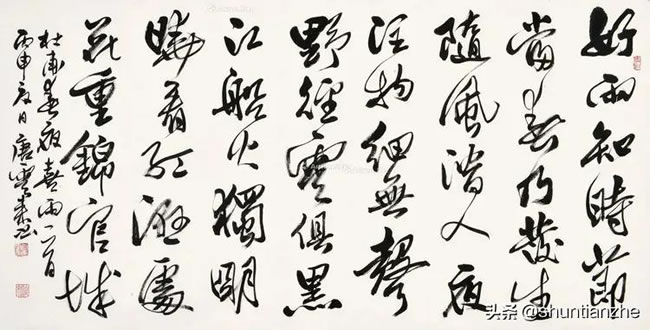 好雨知時節
當春乃發生
隨風潛入夜
潤物細無聲
野徑雲俱黑
江船火獨明
曉看紅濕處
花重錦官城
杜甫春夜喜雨一首
丙申夏日唐雲來書
头条 @shuntianzhe